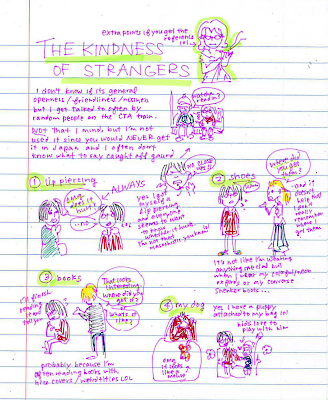 extra points if you get the
reference
lol
THE KINDNESS
OF STRANGERS
I don't know if its general
openness/friendliness/
but I get talked to often by
random people on the CTA train.
Not that I mind, but I'm not
used it since you would NEVER get
it in Japan and I often dont
know what to say caught off gaurd
1 lip piercing
ALWAYS
...no
NO
yes I got
myself a
lip piercing
and everyone
seems to
to know
whether it hurts.
I'm not that
2 shoes
where did
you get
them?
and it
doesn't
help that
I don't
really
remember
where I
got them
It's not like I'm wearing
anything special but
when I wear my colorful
or my converse
sneaker boots...
3 books
I'll finish
reading it
and
tell you
That looks
interesting
where did you
get it?
what's
it like?
probably because I'm
often reading books with
covers/weird titles LOL
4 my dog
yes I have a puppy
attached to my bag lol
kids love to
play with him